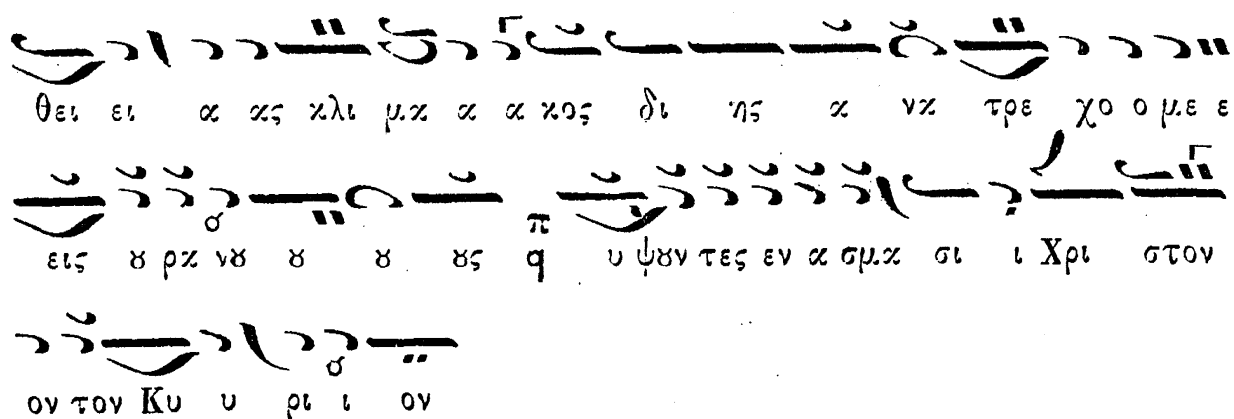 θει ει α ας κλι μα α α κος δι ης α να τρε χο ο με ε
εις ȣ ρα νȣ ȣ ȣ ȣς π q υ ψȣν τες εν α σμα σι ι Χρι στον
ον τον Κυ υ ρι ι ον